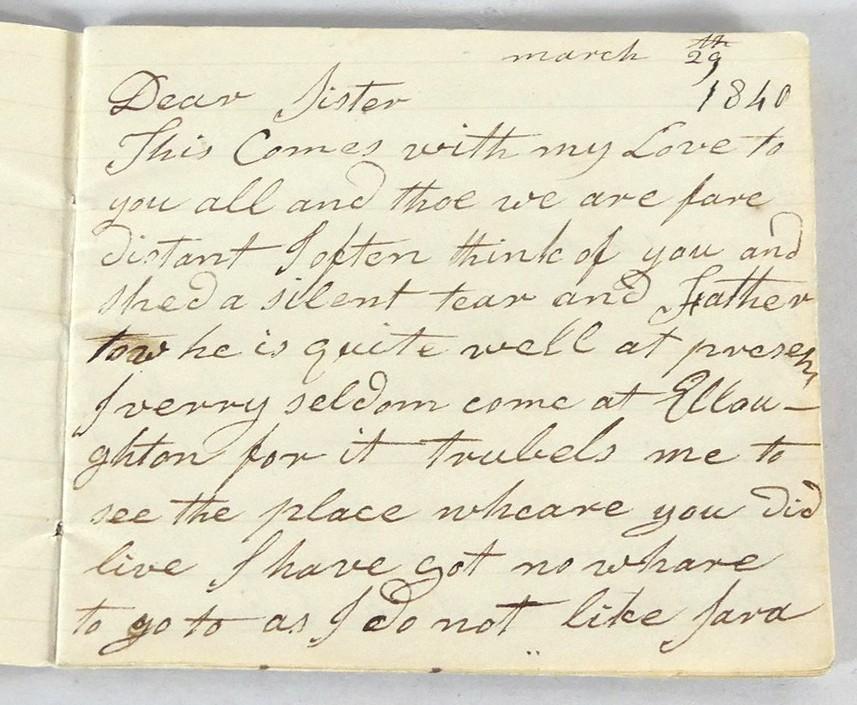 march 29th
1840
Dear Sister
This Comes with my Love to
you all and thoe we are fare
distant I often think of you and
shed a silent tear and Father
tow he is quite well at present
I verry seldom come at Ellou-
ghton for it trubels me to
see the place wheare you did
live I have got no whare
to go to as I do not like Sara